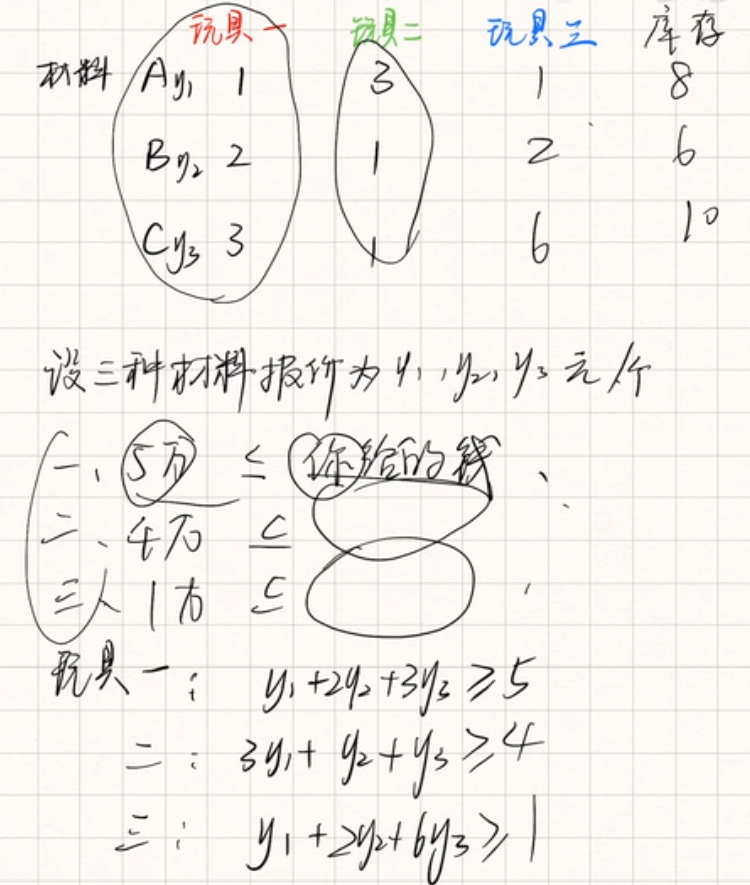 玩具一 玩具二 玩具三 库存
材料 Ay₁ 1 3 1 8
By₂ 2 1 2 6
Cy₃ 3 1 6 10
设三种材料报价为 y₁, y₂, y₃ 元/个
一、5万 ≤ 你给的钱、
二、4万 ≤
三、1万 ≤
玩具一: y₁+2y₂+3y₃≥5
二: 3y₁+y₂+y₃≥4
三: y₁+2y₂+6y₃≥1